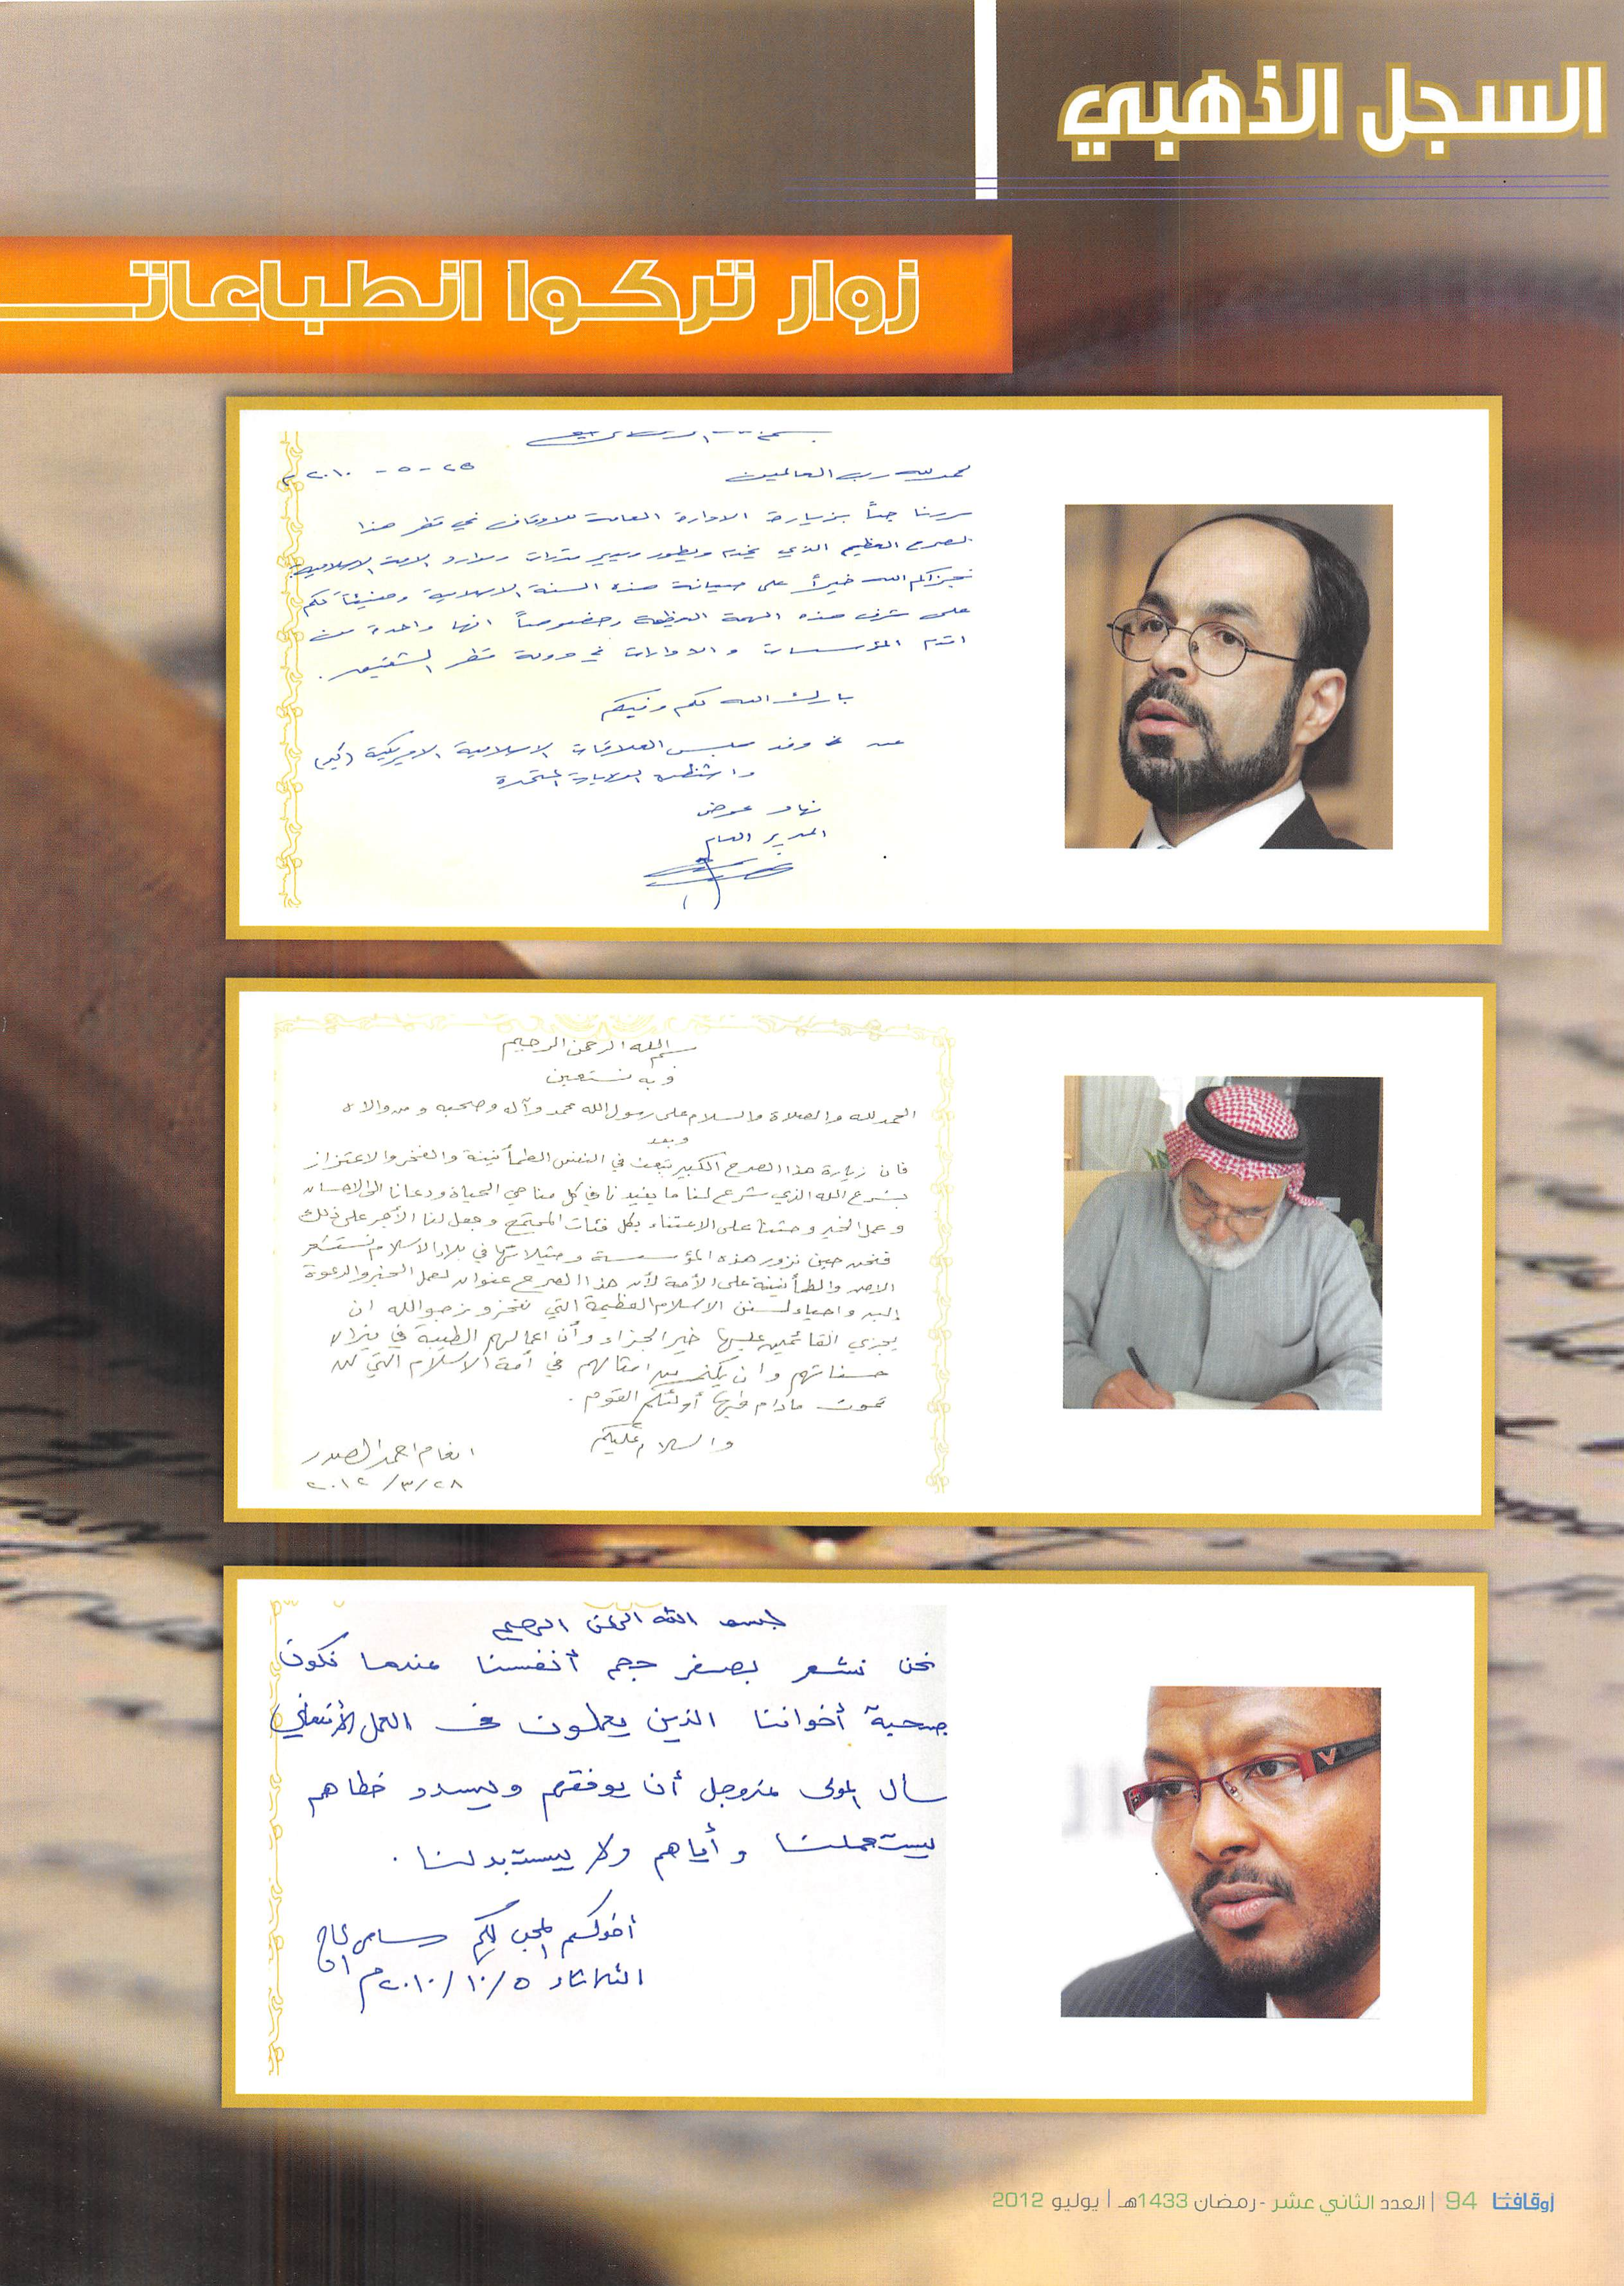 السجل الذهبي
زوار تركوا انطباعات
الحمد لله رب العالمين
٢٥ - ٥ - ٢٠١٠م
سررنا جداً بزيارة الادارة العامة للاوقاف في قطر هذا
الصرح العظيم الذي يخدم ويطور ويسير مقدرات وموارد الامة الاسلامية
فجزاكم الله خيراً على صيانة هذه السنة الاسلامية وهنيئاً لكم
على شرف هذه المهمة العظيمة وخصوصاً انها واحدة من
اقدم المؤسسات والادارات في دولة قطر الشقيقة.
بارك الله لكم وفيكم
عن وفد مجلس العلاقات الاسلامية الامريكية (كير)
واشنطن الولايات المتحدة
نهاد عوض
المدير العام
بسم الله الرحمن الرحيم
وبه نستعين
الحمد لله والصلاة والسلام على رسول الله محمد وآله وصحبه ومن والاه
وبعد
فان زيارة هذا الصرح الكبير تبعث في النفس الطمأنينة والفخر والاعتزاز
بشرع الله الذي شرع لنا ما يفيدنا في كل مناحي الحياة ودعانا الى الاحسان
وعمل الخير وحثنا على الاعتناء بكل فئات المجتمع وجعل لنا الأجر على ذلك
فنحن حين نزور هذه المؤسسة ومثيلاتها في بلاد الاسلام نستشعر
الامن والطمأنينة على الأمة لأن هذا الصرح عنوان لعمل الخير والدعوة
إليه واحياء لسنن الاسلام العظيمة التي نفخر ونرجو الله ان
يجزي القائمين عليها خير الجزاء وأن اعمالهم الطيبة في ميزان
حسناتهم وان يكثر من امثالهم في أمة الاسلام التي لن
تموت مادام فيها أولئكم القوم.
والسلام عليكم
انعام احمد الصدر
٢٨/٣/٢٠١٢
بسم الله الرحمن الرحيم
نحن نشعر بصغر حجم أنفسنا عندما نكون
صحبة أخواننا الذين يعملون في العمل
سأل المولى عزوجل أن يوفقهم ويسدد خطاهم
يستعملنا وأياهم ولا يستبدلنا.
أخوكم المحب لكم سامي الحاج
الثلاثاء ٥/١٠/٢٠١٠م
أوقافنا 94 | العدد الثاني عشر - رمضان 1433هـ | يوليو 2012